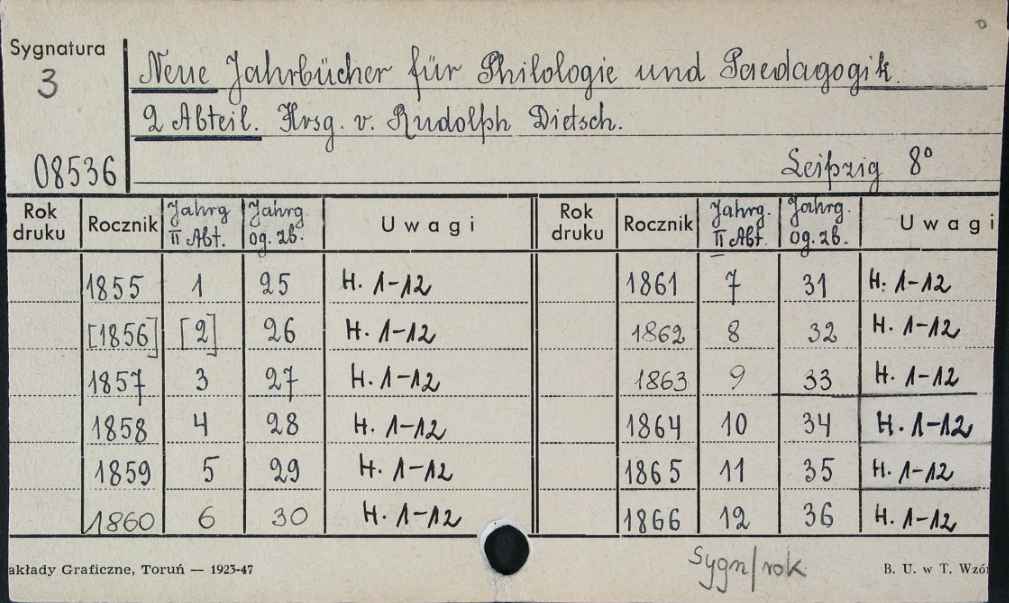 Sygnatura
3
08536
Neue Jahrbücher für Philologie und Paedagogik.
2 Abteil. Hrsg. v. Rudolph Dietsch.
Leipzig 8°
Rok druku Rocznik Jahrg II Abt. Jahrg. og. zb. Uwagi Rok druku Rocznik Jahrg. II Abt. Jahrg. og. zb. Uwagi
1855 1 25 H. 1-12 1861 7 31 H. 1-12
[1856] [2] 26 H. 1-12 1862 8 32 H. 1-12
1857 3 27 H. 1-12 1863 9 33 H. 1-12
1858 4 28 H. 1-12 1864 10 34 H. 1-12
1859 5 29 H. 1-12 1865 11 35 H. 1-12
1860 6 30 H. 1-12 1866 12 36 H. 1-12
Sygn/rok
akłady Graficzne, Toruń — 1923-47 B. U. w T. Wzó